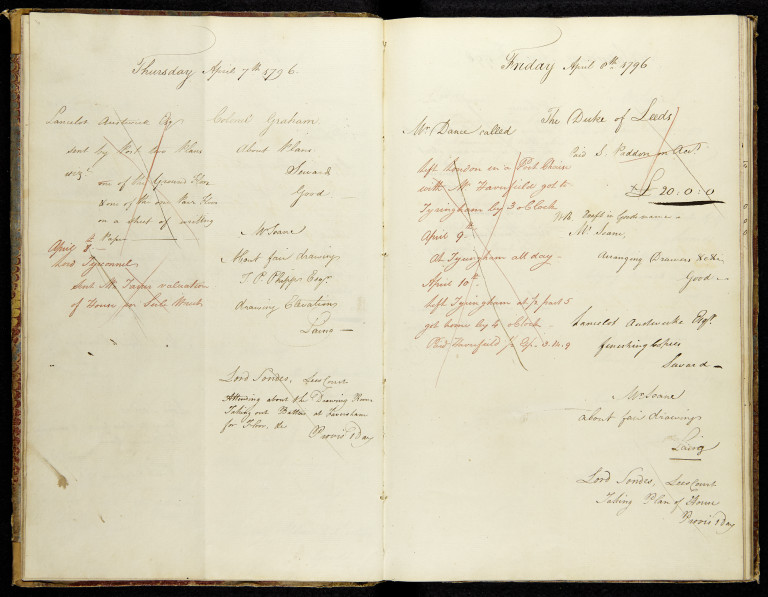 Thursday April 7th 1796.
Lancelot Austwick Esqr
sent by Post two Plans
one of the Ground Floor
& one of the one Pair Floor
on a sheet of
Paper
April 8th
Lord Tyrconnel
sent Mr valuation
of House in
Colonel Graham
About Plans
Seward
Good
Mr Soane
About fair drawings
T. P. Phipps Esqr.
drawing Elevations
Laing
Lord Sondes, Lees Court
Attending about the Drawing Room
Taking out Batten at
for Floor &c
Provis 1 Day
Friday April 8th 1796
Mr Dance called
left London in a Post Chaise
with Mr got to
Tyringham by 3 o Clock
April 9th
At Tyringham all day
April 10th
left Tyringham at 1/2 past 5
got home by 4 o Clock
Paid
The Duke of Leeds
Paid J. Paddon on Acct.
£ 20.0.0
NB
Mr Soane,
Arranging Drawers &c &c
Good
Lancelot Austwicke Esqr.
finishing Copies
Seward
Mr Soane
about fair drawings
Laing
Lord Sondes, Lees Court
Taking Plan of House
Provis 1 Day